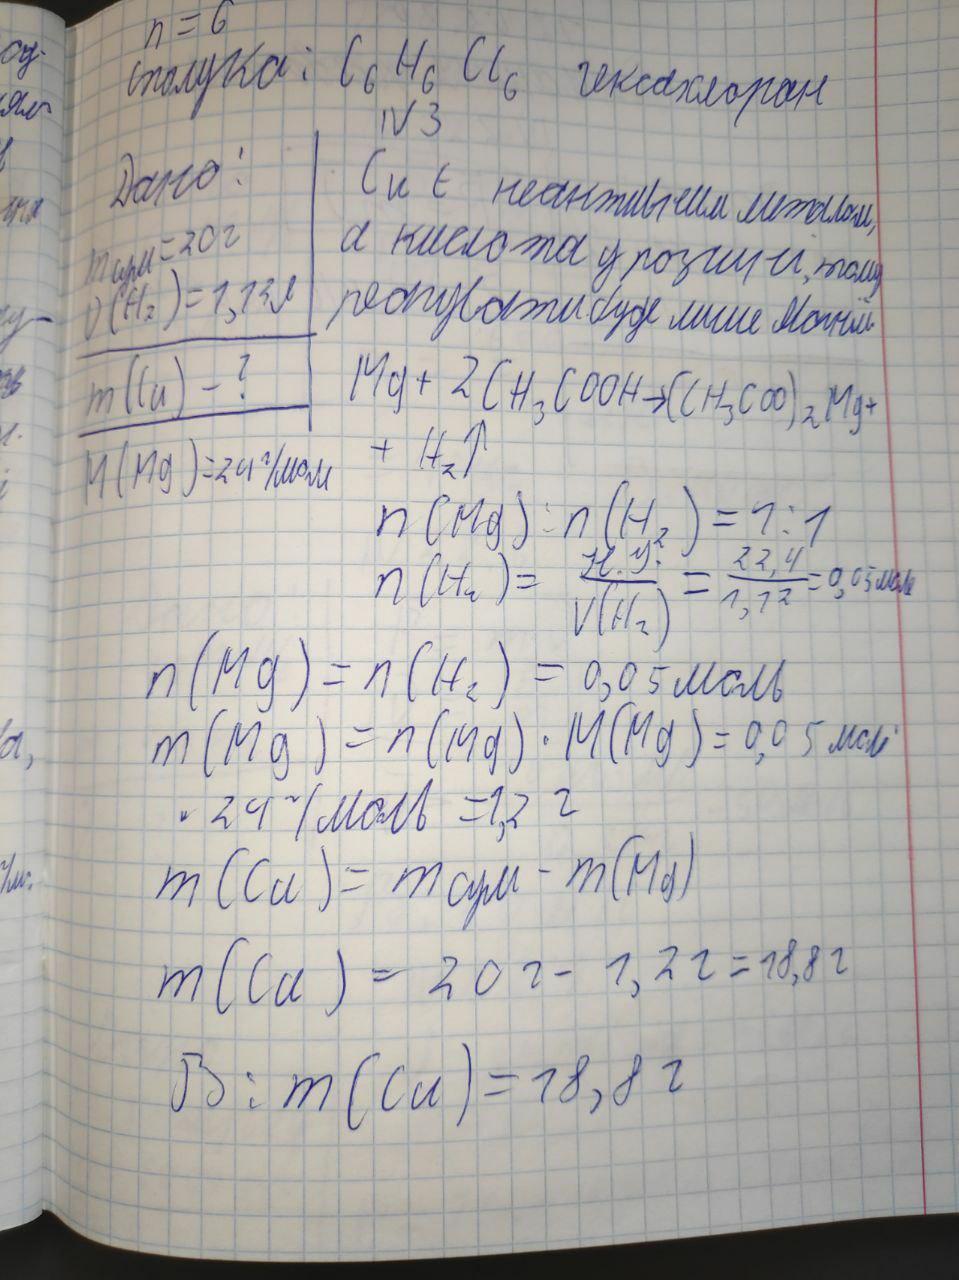 n = 6
сполука: C6H6Cl6 гексахлоран
IV 3
Дано:
mсум = 20 г
V(H2) = 1,12 л
m(Cu) - ?
M(Mg) = 24 г/моль
Cu є неактивним металом,
а кислота у розчині, тому
реагувати буде лише
Mg + 2CH3COOH → (CH3COO)2Mg +
+ H2↑
n(Mg) : n(H2) = 1 : 1
n(H2) = н.у. / V(H2) = 22,4 / 1,12 = 0,05 моль
n(Mg) = n(H2) = 0,05 моль
m(Mg) = n(Mg) · M(Mg) = 0,05 моль
· 24 г/моль = 1,2 г
m(Cu) = mсум - m(Mg)
m(Cu) = 20 г - 1,2 г = 18,8 г
В: m(Cu) = 18,8 г